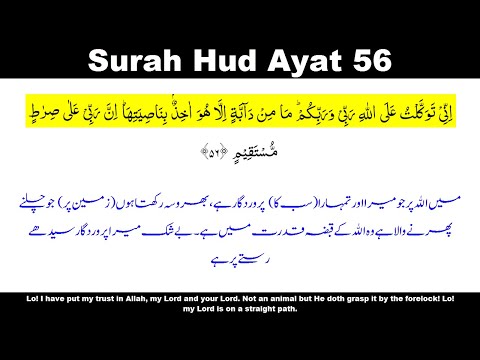 Surah Hud Ayat 56
اِنِّىۡ تَوَكَّلۡتُ عَلَى اللّٰهِ رَبِّىۡ وَرَبِّكُمۡ‌ؕ مَا مِنۡ دَآبَّةٍ اِلَّا هُوَ اٰخِذٌۢ بِنَاصِيَتِهَا‌ؕ اِنَّ رَبِّىۡ عَلٰى صِرَاطٍ
مُّسۡتَقِيۡمٍ ﴿۵۶﴾
میں الله پر جو میرا اور تمہارا (سب کا) پروردگار ہے، بھروسہ رکھتا ہوں (زمین پر) جو چلنے
پھرنے والا ہے وہ الله کے قبضہ قدرت میں ہے۔ بے شک میرا پروردگار سیدھے
رستے پر ہے
Lo! I have put my trust in Allah, my Lord and your Lord. Not an animal but He doth grasp it by the forelock! Lo!
my Lord is on a straight path.